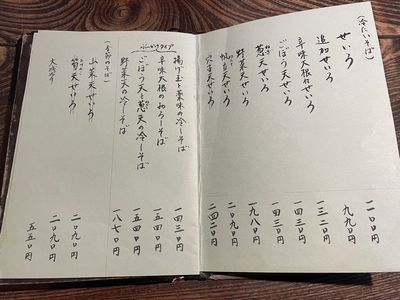 (冷たいそば)
せいろ 一一〇〇円
追加せいろ 九九〇円
辛味大根せいろ 一三二〇円
ごぼう天せいろ 一四三〇円
葱天せいろ 一四三〇円
野菜天せいろ 一九八〇円
帆立天せいろ 二〇九〇円
穴子天せいろ 二四二〇円
ぶっかけタイプ
揚げ玉と薬味の冷しそば 一四三〇円
辛味大根のおろしそば 一五四〇円
ごぼう天と葱天の冷しそば 一五四〇円
野菜天の冷しそば 一八七〇円
(季節のそば)
山菜天せいろ!! 二〇九〇円
筍天せいろ!! 二〇九〇円
大盛り 五五〇円